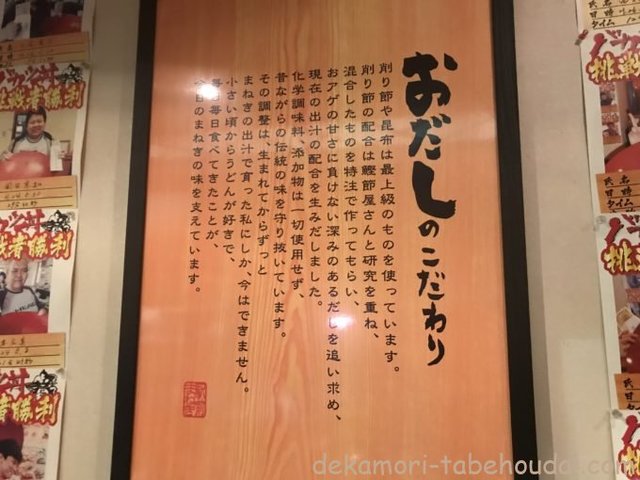 おだしのこだわり
削り節や昆布は最上級のものを使っています。
削り節の配合は鰹節屋さんと研究を重ね、
混合したものを特注で作ってもらい、
おアゲの甘さに負けない深みのあるだしを追い求め、
現在の出汁の配合を生みだしました。
化学調味料、添加物は一切使用せず、
昔ながらの伝統の味を守り抜いています。
その調整は、生まれてからずっと
まねきの出汁で育った私にしか、今はできません。
小さい頃からうどんが好きで、
毎日毎日食べてきたことが、
今日のまねきの味を支えています。
挑戦
氏名
タイム
挑戦者勝利
dekamori-tabehoudai.com